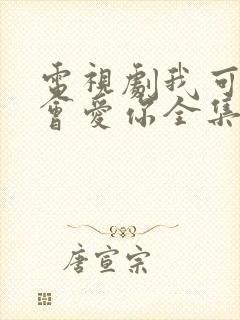 電視劇我可
會愛你全集
唐宣宗